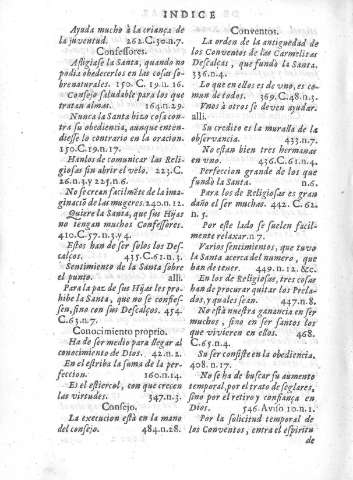 INDICE
Ayuda mucho à la criança de
la juventud. 262.C.30.n.7.
Confessores.
Afligiase la Santa, quando no
podia obedecerlos en las cosas so-
brenaturales. 150. C. 19.n. 16.
Consejo saludable para los que
tratan almas. 164.n.29.
Nunca la Santa hizo cosa con-
tra su obediencia, aunque enten-
diesse lo contrario en la oracion.
150.C.19.n.17.
Hanlos de comunicar las Reli-
giosas sin abrir el velo. 223.C.
26.n.4.y 225.n.6.
No se crean facilmẽte de la ima-
ginaciõ de las mugeres. 240.n.12.
Quiere la Santa, que sus Hijas
no tengan muchos Confessores.
410.C.57.n.3.y 4.
Estos han de ser solos los Des-
calços. 435.C.61.n.3.
Sentimiento de la Santa sobre
el punto. alli.
Para la paz de sus Hijas les pro-
hibe la Santa, que no se confies-
sen, sino con sus Descalços. 454.
C.63.n.7.
Conocimiento proprio.
Ha de ser medio para llegar al
conocimiento de Dios. 42.n.2.
En el estriba la suma de la per-
feccion. 160.n.14.
Es el estiercol, con que crecen
las virtudes. 347.n.3.
Consejo.
La execucion està en la mano
del consejo. 484.n.28.
Conventos.
La orden de la antiguedad de
los Conventos de las Carmelitas
Descalças, que fundò la Santa.
336.n.4.
Lo que en ellos es de uno, es co-
mun de todos. 369.C.48.n.3.
Unos à otros se deven ayudar.
alli.
Su credito es la muralla de la
observancia. 433.n.7.
No estàn bien tres hermanas
en uno. 436.C.61.n.4.
Perfeccion grande de los que
fundò la Santa. n.6.
Para los de Religiosas es gran
daño el ser muchas. 442. C. 62.
n. 5.
Por este lado se suelen facil-
mente relaxar. n.7.
Varios sentimientos, que tuvo
la Santa acerca del numero, que
han de tener. 449. n.12. &c.
En los de Religiosas, tres cosas
han de procurar quitar los Prela-
dos, y quales sean. 447.n.8.
No està nuestra ganancia en ser
muchos, sino en ser santos los
que vivieren en ellos. 468.
C.65.n.4.
Su ser consiste en la obediencia.
408.n.17.
No se ha de buscar su aumento
temporal, por el trato de seglares,
sino por el retiro y confiança en
Dios. 546.Aviso 10.n.1.
Por la solicitud temporal de
los Conventos, entra el espiritu
de